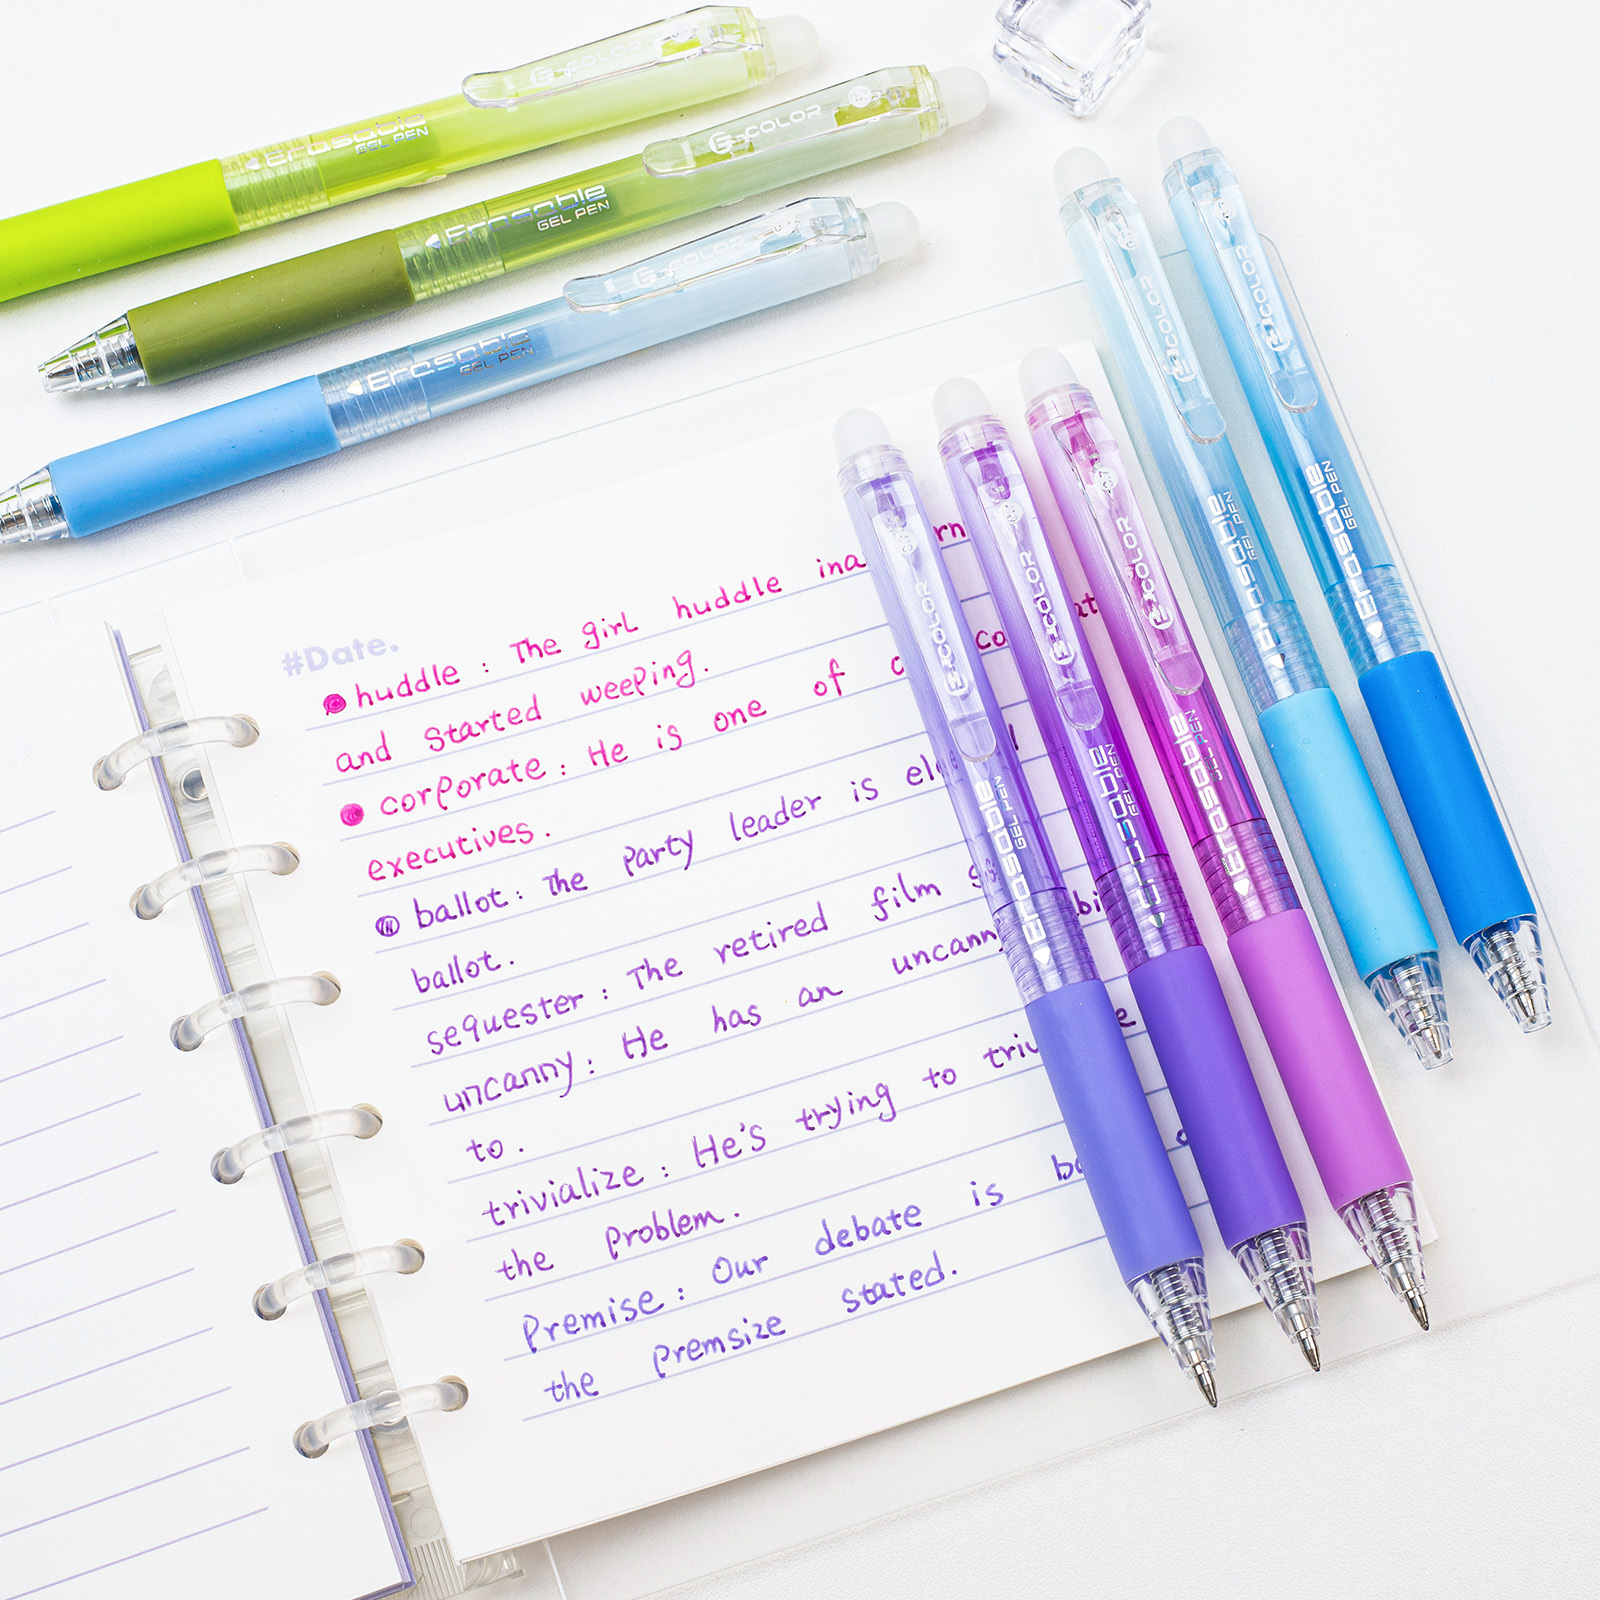 G-COLOR
Erasable
GEL PEN
G-COLOR
Erasable
GEL PEN
G-COLOR
Erasable
GEL PEN
#Date.
huddle : The girl huddle ina
and started weeping.
corporate : He is one of
executives.
ballot : The party leader is
ballot.
sequester : The retired film
uncanny : He has an
to.
trivialize : He's trying to
the problem.
Premise : Our debate is
the premsize stated.
G-COLOR
Erasable
GEL PEN
G-COLOR
Erasable
GEL PEN
G-COLOR
Erasable
GEL PEN
G-COLOR
Erasable
GEL PEN
G-COLOR
Erasable
GEL PEN